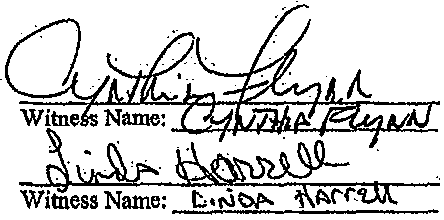 Cynthia Flynn
Witness Name: CYNTHIA FLYNN
Linda Harrell
Witness Name: LINDA HARRELL